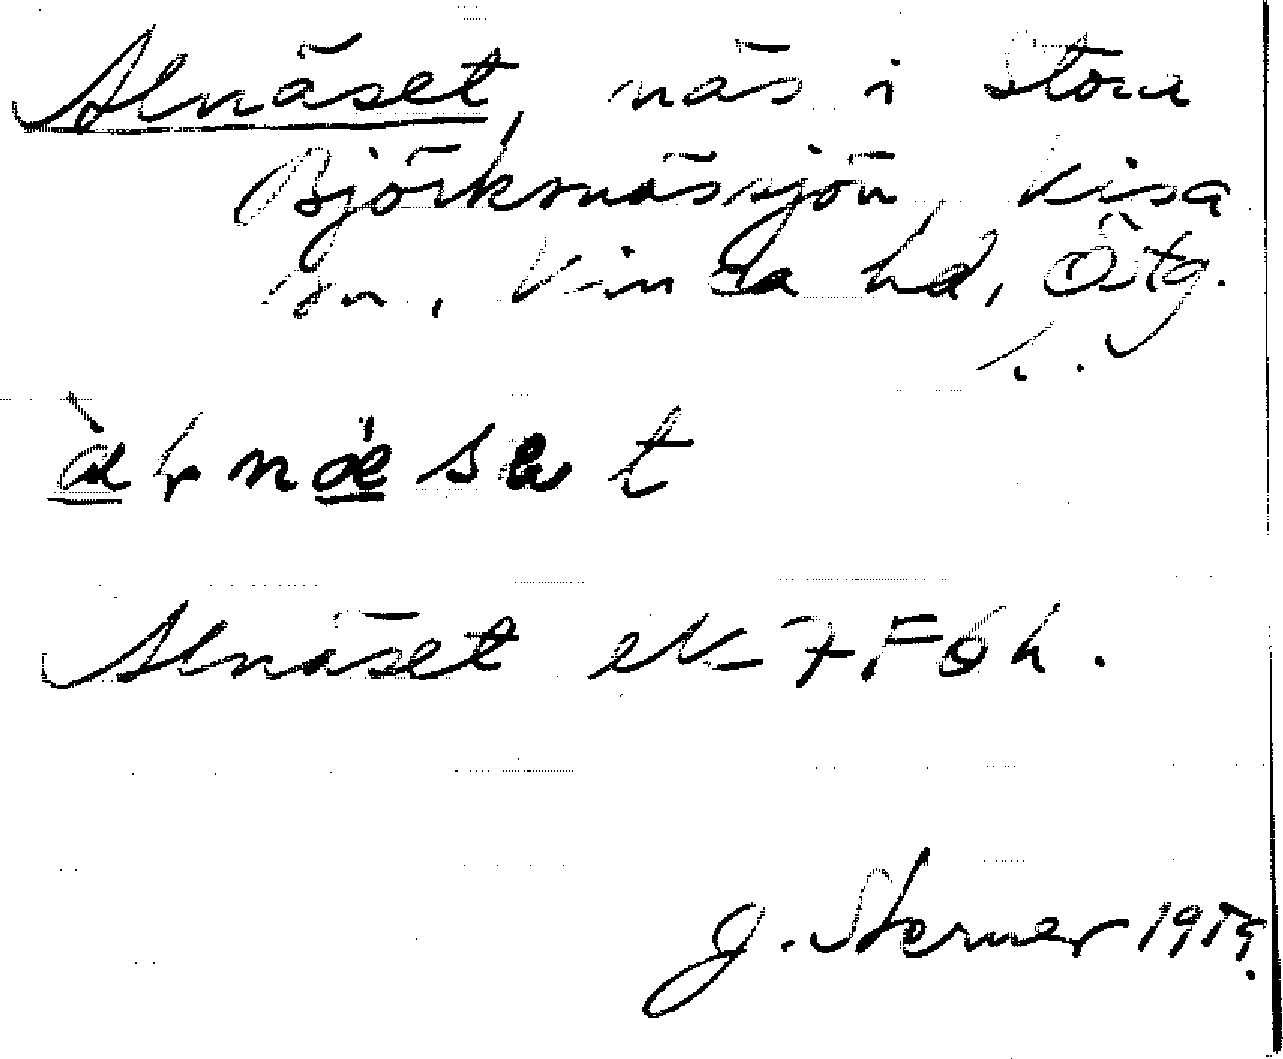 Alnäset, näs i Stora
Björknässjön, Kisa
sn, Kinda hd, Östg.
Alnäset ek 7F6h.
G. Sterner 1959.